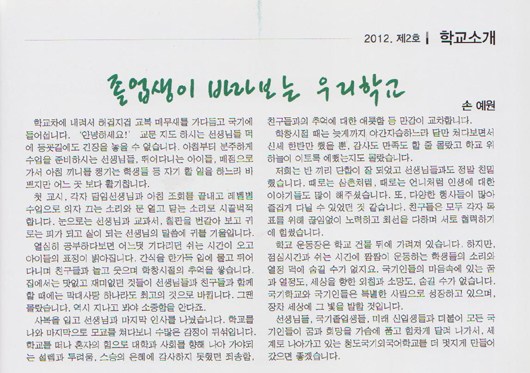 2012. 제2호 | 학교소개
졸업생이 바라보는 우리학교
손 예원
학교차에 내려서 허겁지겁 교복 매무새를 가다듬고 국기에
들어섭니다. '안녕하세요!' 교문 지도 하시는 선생님들 덕
에 등굣길에도 긴장을 놓을 수 없습니다. 아침부터 분주하게
수업을 준비하시는 선생님들, 뛰어다니는 아이들, 매점으로
가서 아침 끼니를 챙기는 학생들 등 자기 할 일을 하느라 바
쁘지만 어느 곳 보다 활기찹니다.
첫 교시, 각자 담임선생님과 아침 조회를 끝내고 레벨별
수업으로 의자 끄는 소리와 문 열고 닫는 소리로 시끌벅적
합니다. 눈으로는 선생님과 교과서, 칠판을 번갈아 보고 귀
로는 피가 되고 살이 되는 선생님의 말씀에 귀를 기울입니다.
열심히 공부하다보면 어느덧 기다리던 쉬는 시간이 오고
아이들의 표정이 밝아집니다. 간식을 가득 입에 물고 뛰어
다니며 친구들과 놀고 웃으며 학창시절의 추억을 쌓습니다.
집에서는 맛없고 재미없던 것들이 선생님들과 친구들과 함께
할 때에는 막대사탕 하나라도 최고의 것으로 변합니다. 그땐
몰랐습니다. 역시 지나고 봐야 소중함을 안다죠.
사복을 입고 선생님과 마지막 인사를 나눴습니다. 학교를
나와 마지막으로 모교를 쳐다보니 수많은 감정이 뒤섞입니다.
학교를 떠나 혼자의 힘으로 대학과 사회를 향해 나아 가야되
는 설렘과 두려움, 스승의 은혜에 감사하지 못했던 죄송함,
친구들과의 추억에 대한 애틋함 등 만감이 교차합니다.
학창시절 때는 늦게까지 야간자습하느라 달만 쳐다보면서
신세 한탄만 했을 뿐, 감사도 만족도 할 줄 몰랐고 학교 위
하늘이 이토록 예뻤는지도 몰랐습니다.
저희는 반 끼리 단합이 잘 되었고 선생님들과도 정말 친밀
했습니다. 때로는 삼촌처럼, 때로는 언니처럼 인생에 대한
이야기들도 많이 해주셨습니다. 또, 다양한 행사들이 많아
즐겁게 다닐 수 있었던 것 같습니다. 친구들은 모두 각자 목
표를 위해 끊임없이 노력하고 최선을 다하며 서로 협력하기
에 힘썼습니다.
학교 운동장은 학교 건물 뒤에 가려져 있습니다. 하지만,
점심시간과 쉬는 시간에 땀땀이 운동하는 학생들의 소리와
열정 먹에 숨길 수가 없지요. 국기인들의 마음속에 있는 꿈
과 열정도, 세상을 향한 외침과 소망도, 숨길 수가 없습니다.
국기학교와 국기인들은 특별한 사람으로 성장하고 있으며,
장차 세상에 그 빛을 발할 것입니다.
선생님들, 국기졸업생들, 미래 신입생들과 더불어 모든 국
기인들이 꿈과 희망을 가슴에 품고 힘차게 달려 나가서, 세
계로 나아가고 있는 청도국기외국어학교를 더 멋지게 만들어
갔으면 좋겠습니다.